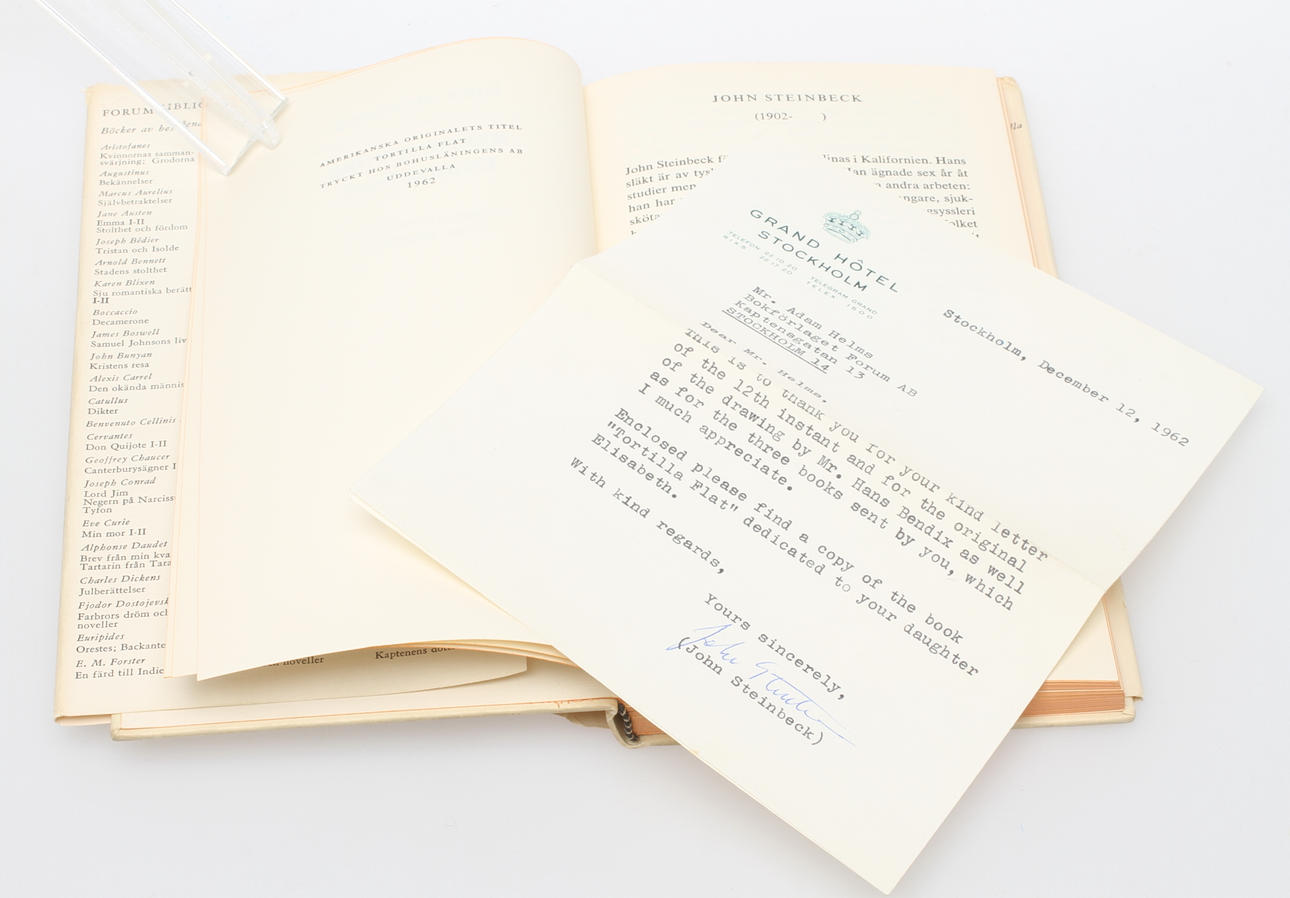 FORUMBIBLIO
Böcker av bes
Aristofanes
Kvinnornas samman-
svärjning; Grodorna
Augustinus
Bekännelser
Marcus Aurelius
Självbetraktelser
Jane Austen
Emma I-II
Stolthet och fördom
Joseph Bédier
Tristan och Isolde
Arnold Bennett
Stadens stolthet
Karen Blixen
Sju romantiska berätt
I-II
Boccaccio
Decamerone
James Boswell
Samuel Johnsons liv
John Bunyan
Kristens resa
Alexis Carrel
Den okända männis
Catullus
Dikter
Benvenuto Cellinis
Cervantes
Don Quijote I-II
Geoffrey Chaucer
Canterburysägner I
Joseph Conrad
Lord Jim
Negern på Narciss
Tyfon
Eve Curie
Min mor I-II
Alphonse Daudet
Brev från min kva
Tartarin från Tara
Charles Dickens
Julberättelser
Fjodor Dostojevsk
Farbrors dröm och
noveller
Euripides
Orestes; Backante
E. M. Forster
En färd till Indie
AMERIKANSKA ORIGINALETS TITEL
TORTILLA FLAT
TRYCKT HOS BOHUSLÄNINGENS AB
UDDEVALLA
1962
noveller
Kaptenens
JOHN STEINBECK
(1902- )
John Steinbeck linas i Kalifornien. Hans
släkt är av Han ägnade sex år åt
studier men andra arbeten:
han har sjuk-
GRAND HÔTEL
STOCKHOLM
TELEFON 22 10 20 TELEGRAM GRAND
TELEX 1500
Stockholm, December 12, 1962
Mr. Adam Helms
Bokförlaget Forum AB
Kaptensgatan 13
STOCKHOLM 14
Dear Mr. Helms,
This is to thank you for your kind letter
of the 12th instant and for the original
of the drawing by Mr. Hans Bendix as well
as for the three books sent by you, which
I much appreciate.
Enclosed please find a copy of the book
"Tortilla Flat" dedicated to your daughter
Elisabeth.
With kind regards,
Yours sincerely,
John Steinbeck
(John Steinbeck)